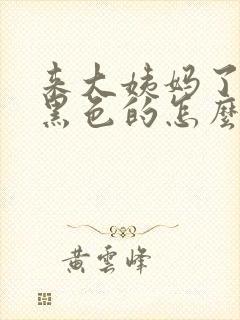 来大姨妈了
黑色的怎麼
黄雲峰